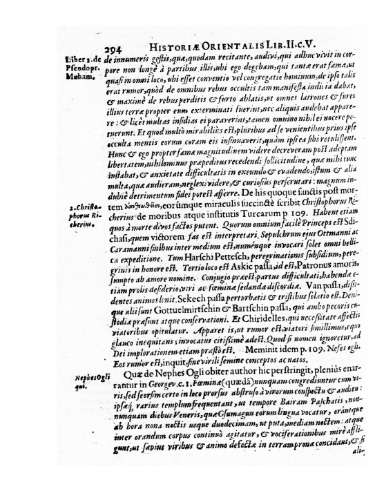 294 HISTORIÆ ORIENTALIS LIB.II.c.V.
Liber 2. de Pseudopr. Muham.
de innumeris gestis, quæ, quodam recitante, audivi, qui adhuc vivit in cor-
pore non longè à partibus illis, ubi ego degebam; qui tantæ erat famæ, ut
quasi in omni loco, ubi esset conventio vel congregatio hominum, de ipso talis
erat rumor, quòd de omnibus rebus occultis tam manifesta indicia dabat,
& maximè de rebus perditis & furto ablatis, ut omnes latrones & fures
illius terræ propter eum exterminati fuerint, nec aliquis audebat appare-
re: & licet multas insidias ei paraverint, tamen omnino nihil ei nocere po-
tuerunt. Et quod multò mirabilius est, pluribus ad se venientibus prius ipse
occulta mentis eorum coram eis insinuaverit, quàm ipsi ea sibi retulissent.
Hunc & ego propter famæ magnitudinem videre decreveram post adeptam
libertatem, nihilominus præ recedendi sollicitudine, quæ mihi tunc
instabat, & anxietate difficultatis in exeundo & evadendo, istum & alia
multa, quæ audieram, neglexi videre, & curiosius perscrutari: magnum in-
dubiè detrimentum fidei potest afferre. De his quoque sanctis post mor-
tem eorumque miraculis succinctè scribit Christophorus Ri-
2. Christophorus Richerius.
cherius de moribus atque institutis Turcarum p 109. Habent etiam
quos à morte divos factos putent. Quorum omnium facilè Princeps est Sdi-
chasi, quem victorem fas est interpretari. Sepulchrum ejus Ottmanni ac
Caramanni solibus inter medium est, eumque invocari solet omni belli-
ca expeditione. Tum Harschi Pettesch, peregrinantibus subsidium, pere-
grinis in honore est. Tertio loco est Askic passa, id est, Patronus amoris,
sumpto ab amore nomine. Conjugio præest partus difficultati, habenda e-
tiam prolis desiderio viri ac fœminæ sedanda discordiæ. Van passa, dissi-
dentes animos lenit. Sekech passa perturbatis & tristibus solatio est. Den-
que alii sunt Gottuelmirtschin & Bartschin passa, qui ambo pecoris cu-
stodiæ præsunt atque conservationi. Et Chiridelles, qui necessitate affectis
viatoribus opitulatur. Apparet is, ut rumor est, viatori simillimus, equo
glauco insequitans, invocatus citissimè adest. Quod si nomen ignoretur, ad
Dei implorationem etiam præstò est. Meminit idem p. 109. Nefes ogli.
Eos rumor est, inquit, sine virili semine conceptos ac natos.
Nephes Ogli qui.
Quæ de Nephes Ogli obiter author hic perstringit, plenius enar-
rantur in Georgev. c. 1. Fœminæ (quædam) nunquam congrediuntur cum vi-
ris, sed seorsim certo in loco prorsus abstruso à virorum conspectu & auditu:
ipsæq́, rarius templum frequentant, ut tempore Bairam Paschatis, non-
nunquam diebus Veneris, quæ Gsumagun eorum lingua vocatur, orántque
ab hora nona noctis usque duodecimam, ut puta, mediam noctem: atque
inter orandum corpus continuò agitatur, & vociferationibus mirè affli-
gunt, ut sæpius viribus & animo defectæ in terram pronæ concidant, & si
ali-